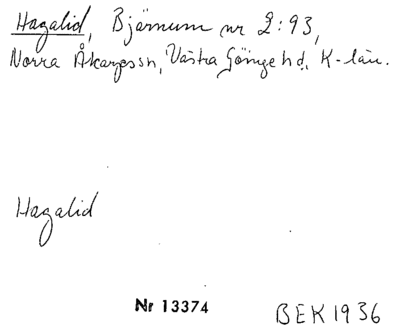 Hagalid, Bjärnum nr 2:93,
Norra Åkarps sn, Västra Göinge hd, K-län.
Hagalid
Nr 13374
BEK 1936